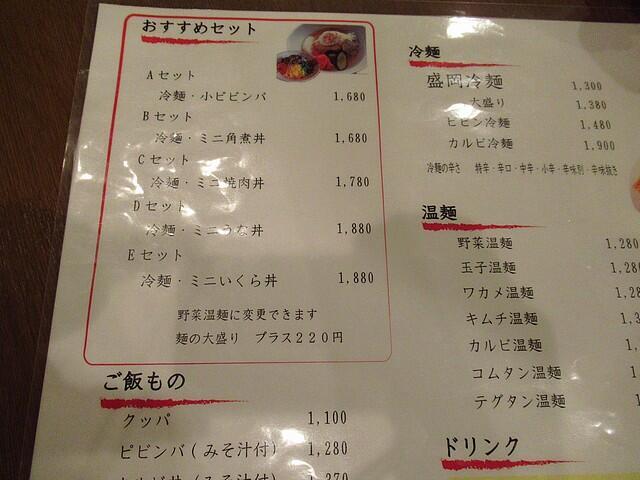 おすすめセット
Aセット
冷麺・小ビビンバ 1,680
Bセット
冷麺・ミニ角煮丼 1,680
Cセット
冷麺・ミニ焼肉丼 1,780
Dセット
冷麺・ミニうな丼 1,880
Eセット
冷麺・ミニいくら丼 1,880
野菜温麺に変更できます
麺の大盛り プラス220円
ご飯もの
クッパ 1,100
ピビンバ(みそ汁付) 1,280
冷麺
盛岡冷麺 1,300
大盛り 1,380
ビビン冷麺 1,480
カルビ冷麺 1,900
冷麺の辛さ 特辛・辛口・中辛・小辛・辛味別・辛味抜き
温麺
野菜温麺 1,280
玉子温麺 1,28
ワカメ温麺 1,28
キムチ温麺 1,3
カルビ温麺 1,
コムタン温麺 1
テグタン温麺
ドリンク